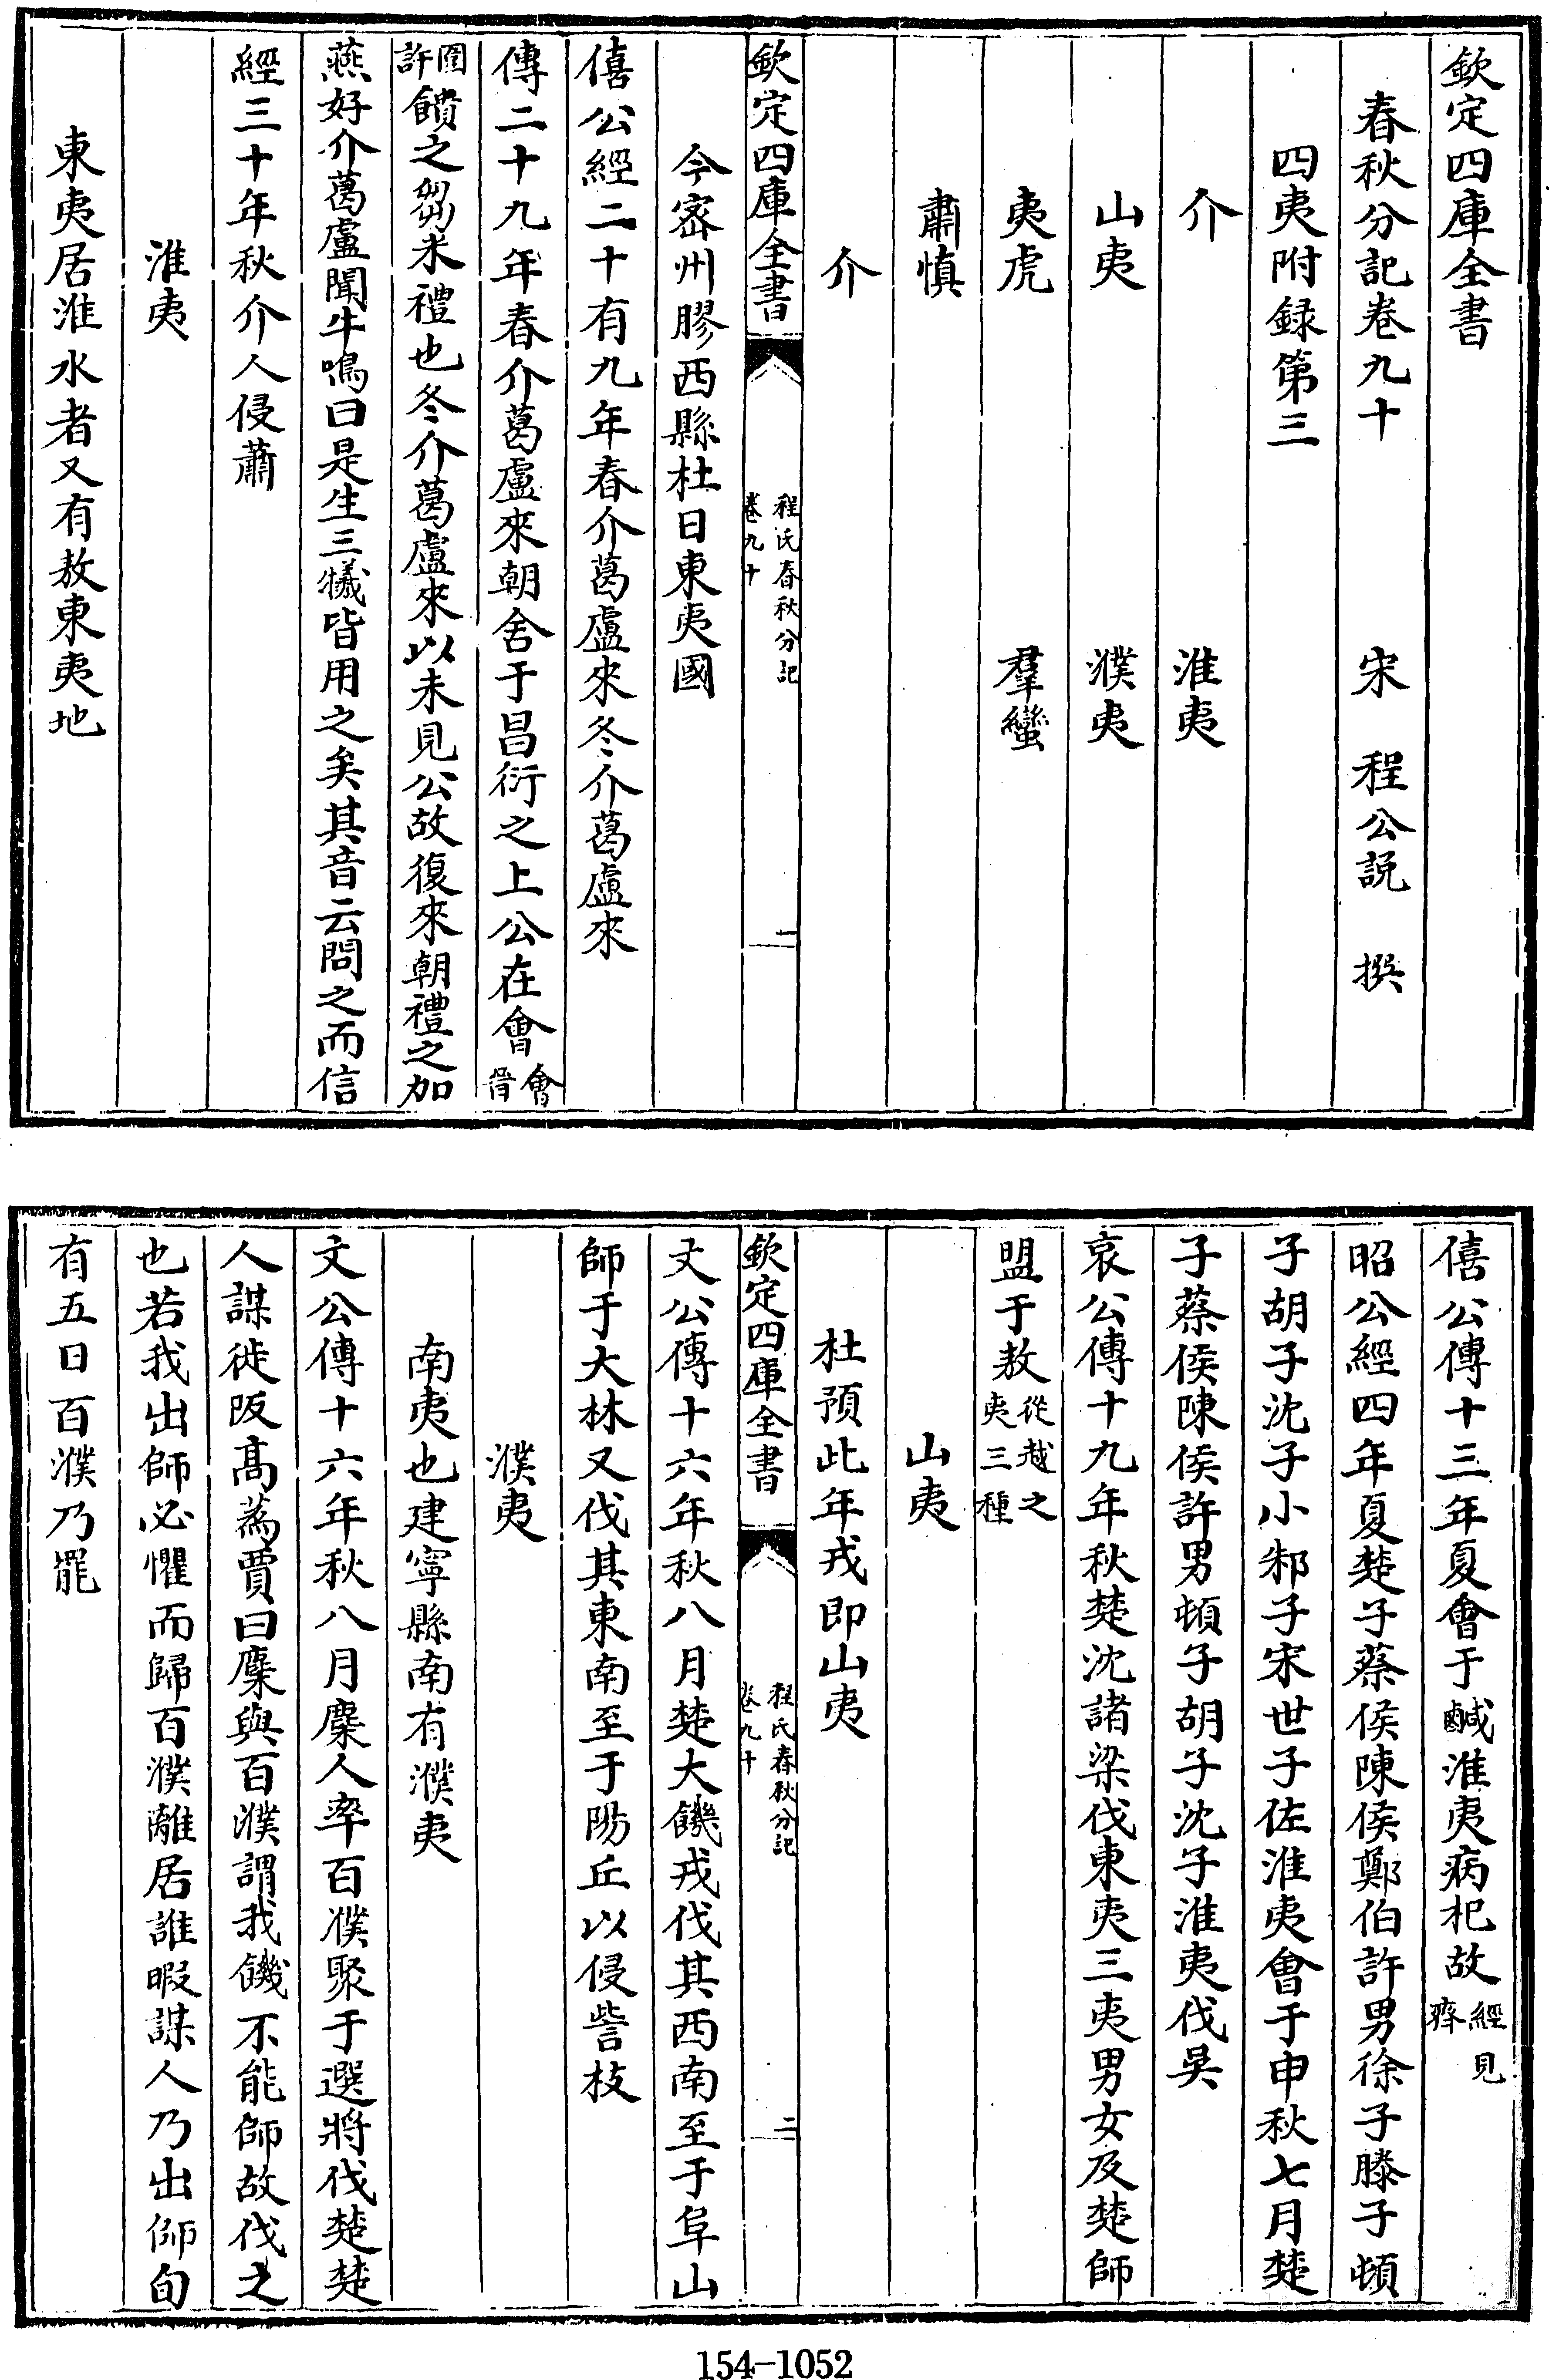 欽定四庫全書
春秋分記卷九十　宋　程公說　撰
四夷附録第三
介　淮夷
山夷　濮夷
夷虎　羣蠻
肅慎
介
欽定四庫全書　程氏春秋分記　卷九十　一
今宻州膠西縣杜曰東夷國
僖公經二十有九年春介葛盧來冬介葛盧來
傳二十九年春介葛盧來朝舍于昌衍之上公在會會晉
圍許饋之芻米禮也冬介葛盧來以未見公故復來朝禮之加
燕好介葛盧聞牛鳴曰是生三犧皆用之矣其音云問之而信
經三十年秋介人侵蕭
淮夷
東夷居淮水者又有敖東夷地
僖公傳十三年夏會于鹹淮夷病杞故經見齊
昭公經四年夏楚子蔡侯陳侯鄭伯許男徐子滕子頓
子胡子沈子小邾子宋世子佐淮夷會于申秋七月楚
子蔡侯陳侯許男頓子胡子沈子淮夷伐吳
哀公傳十九年秋楚沈諸梁伐東夷三夷男女及楚師
盟于敖從越之夷三種
山夷
杜預此年戎即山夷
欽定四庫全書　程氏春秋分記　卷九十　二
文公傳十六年秋八月楚大饑戎伐其西南至于阜山
師于大林又伐其東南至于陽丘以侵訾枝
濮夷
南夷也建寧縣南有濮夷
文公傳十六年秋八月麇人率百濮聚于選將伐楚楚
人謀徙阪高蒍賈曰麇與百濮謂我饑不能師故伐之
也若我出師必懼而歸百濮離居誰暇謀人乃出師旬
有五日百濮乃罷
154-1052